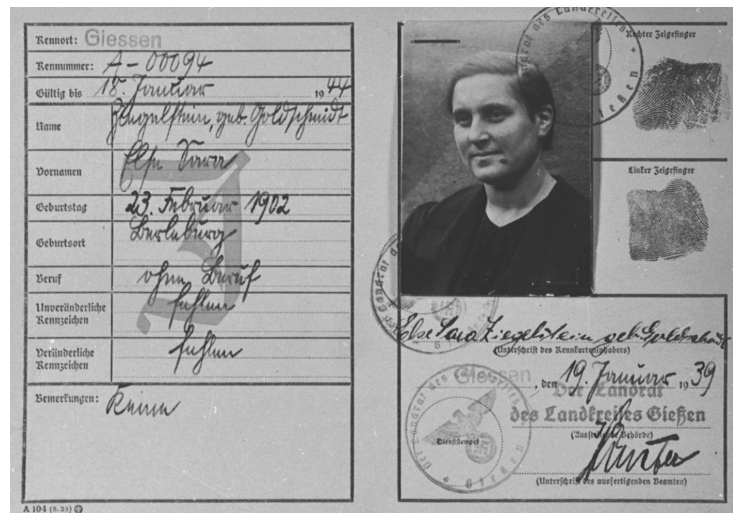 Kennort: Giessen
Kennummer: A-00094
Gültig bis 18. Januar 1944
Name Ziegelstein, geb. Goldschmidt
Vornamen Else Sara
J
Geburtstag 23. Februar 1902
Geburtsort Berleburg
Beruf ohne Beruf
Unveränderliche Kennzeichen fehlen
Veränderliche Kennzeichen fehlen
Bemerkungen: Keine
A 104 (8. 38)
Rechter Zeigefinger
Linker Zeigefinger
Else Sara Ziegelstein geb. Goldschmidt
(Unterschrift des Kennkarteninhabers)
Giessen, den 19. Januar 1939
Der Landrat
des Landkreises Gießen
(Ausstellende Behörde)
Dienststempel
(Unterschrift des ausfertigenden Beamten)
Der Landrat des Kreises Giessen